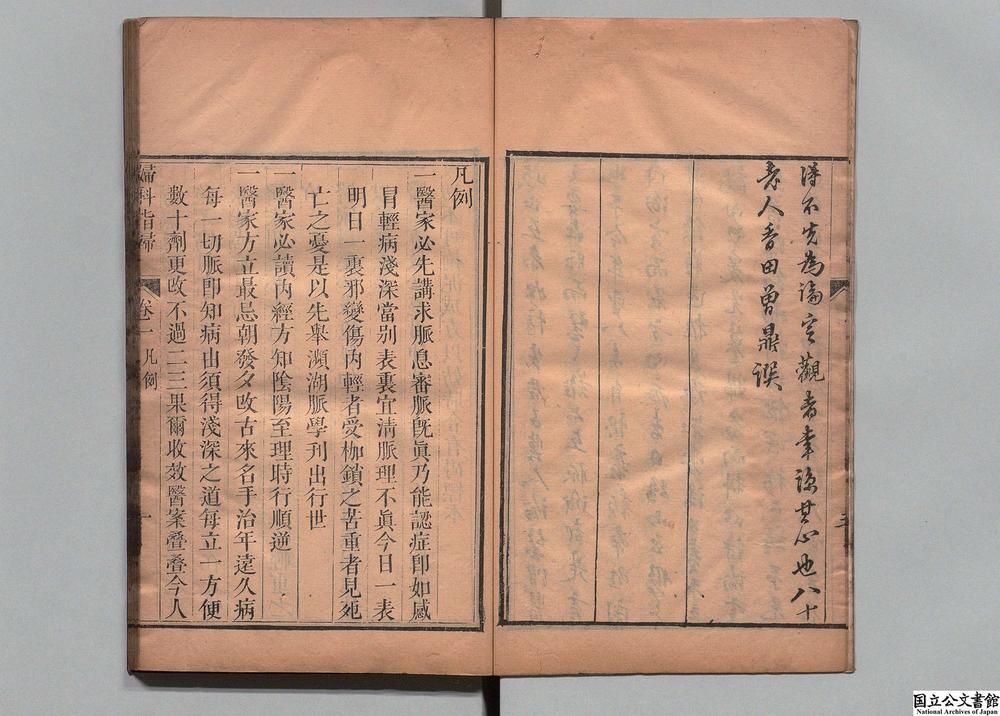 得不先為論定觀者幸諒其心也八十
老人香田曾鼎譔
凡例
一醫家必先講求脈息審脈旣眞乃能認症卽如感
冒輕病淺深當別表裏宜清脈理不眞今日一表
明日一裏邪變傷內輕者受枷鎖之苦重者見死
亡之憂是以先舉瀕湖脈學刋出行世
一醫家必讀內經方知陰陽至理時行順逆
一醫家方立最忌朝發夕改古來名手治年遠久病
每一切脈卽知病由須得淺深之道每立一方便
數十劑更改不過二三果爾收效醫案叠叠今人
婦科指歸
卷一
凡例
一
国立公文書館
National Archives of Japan